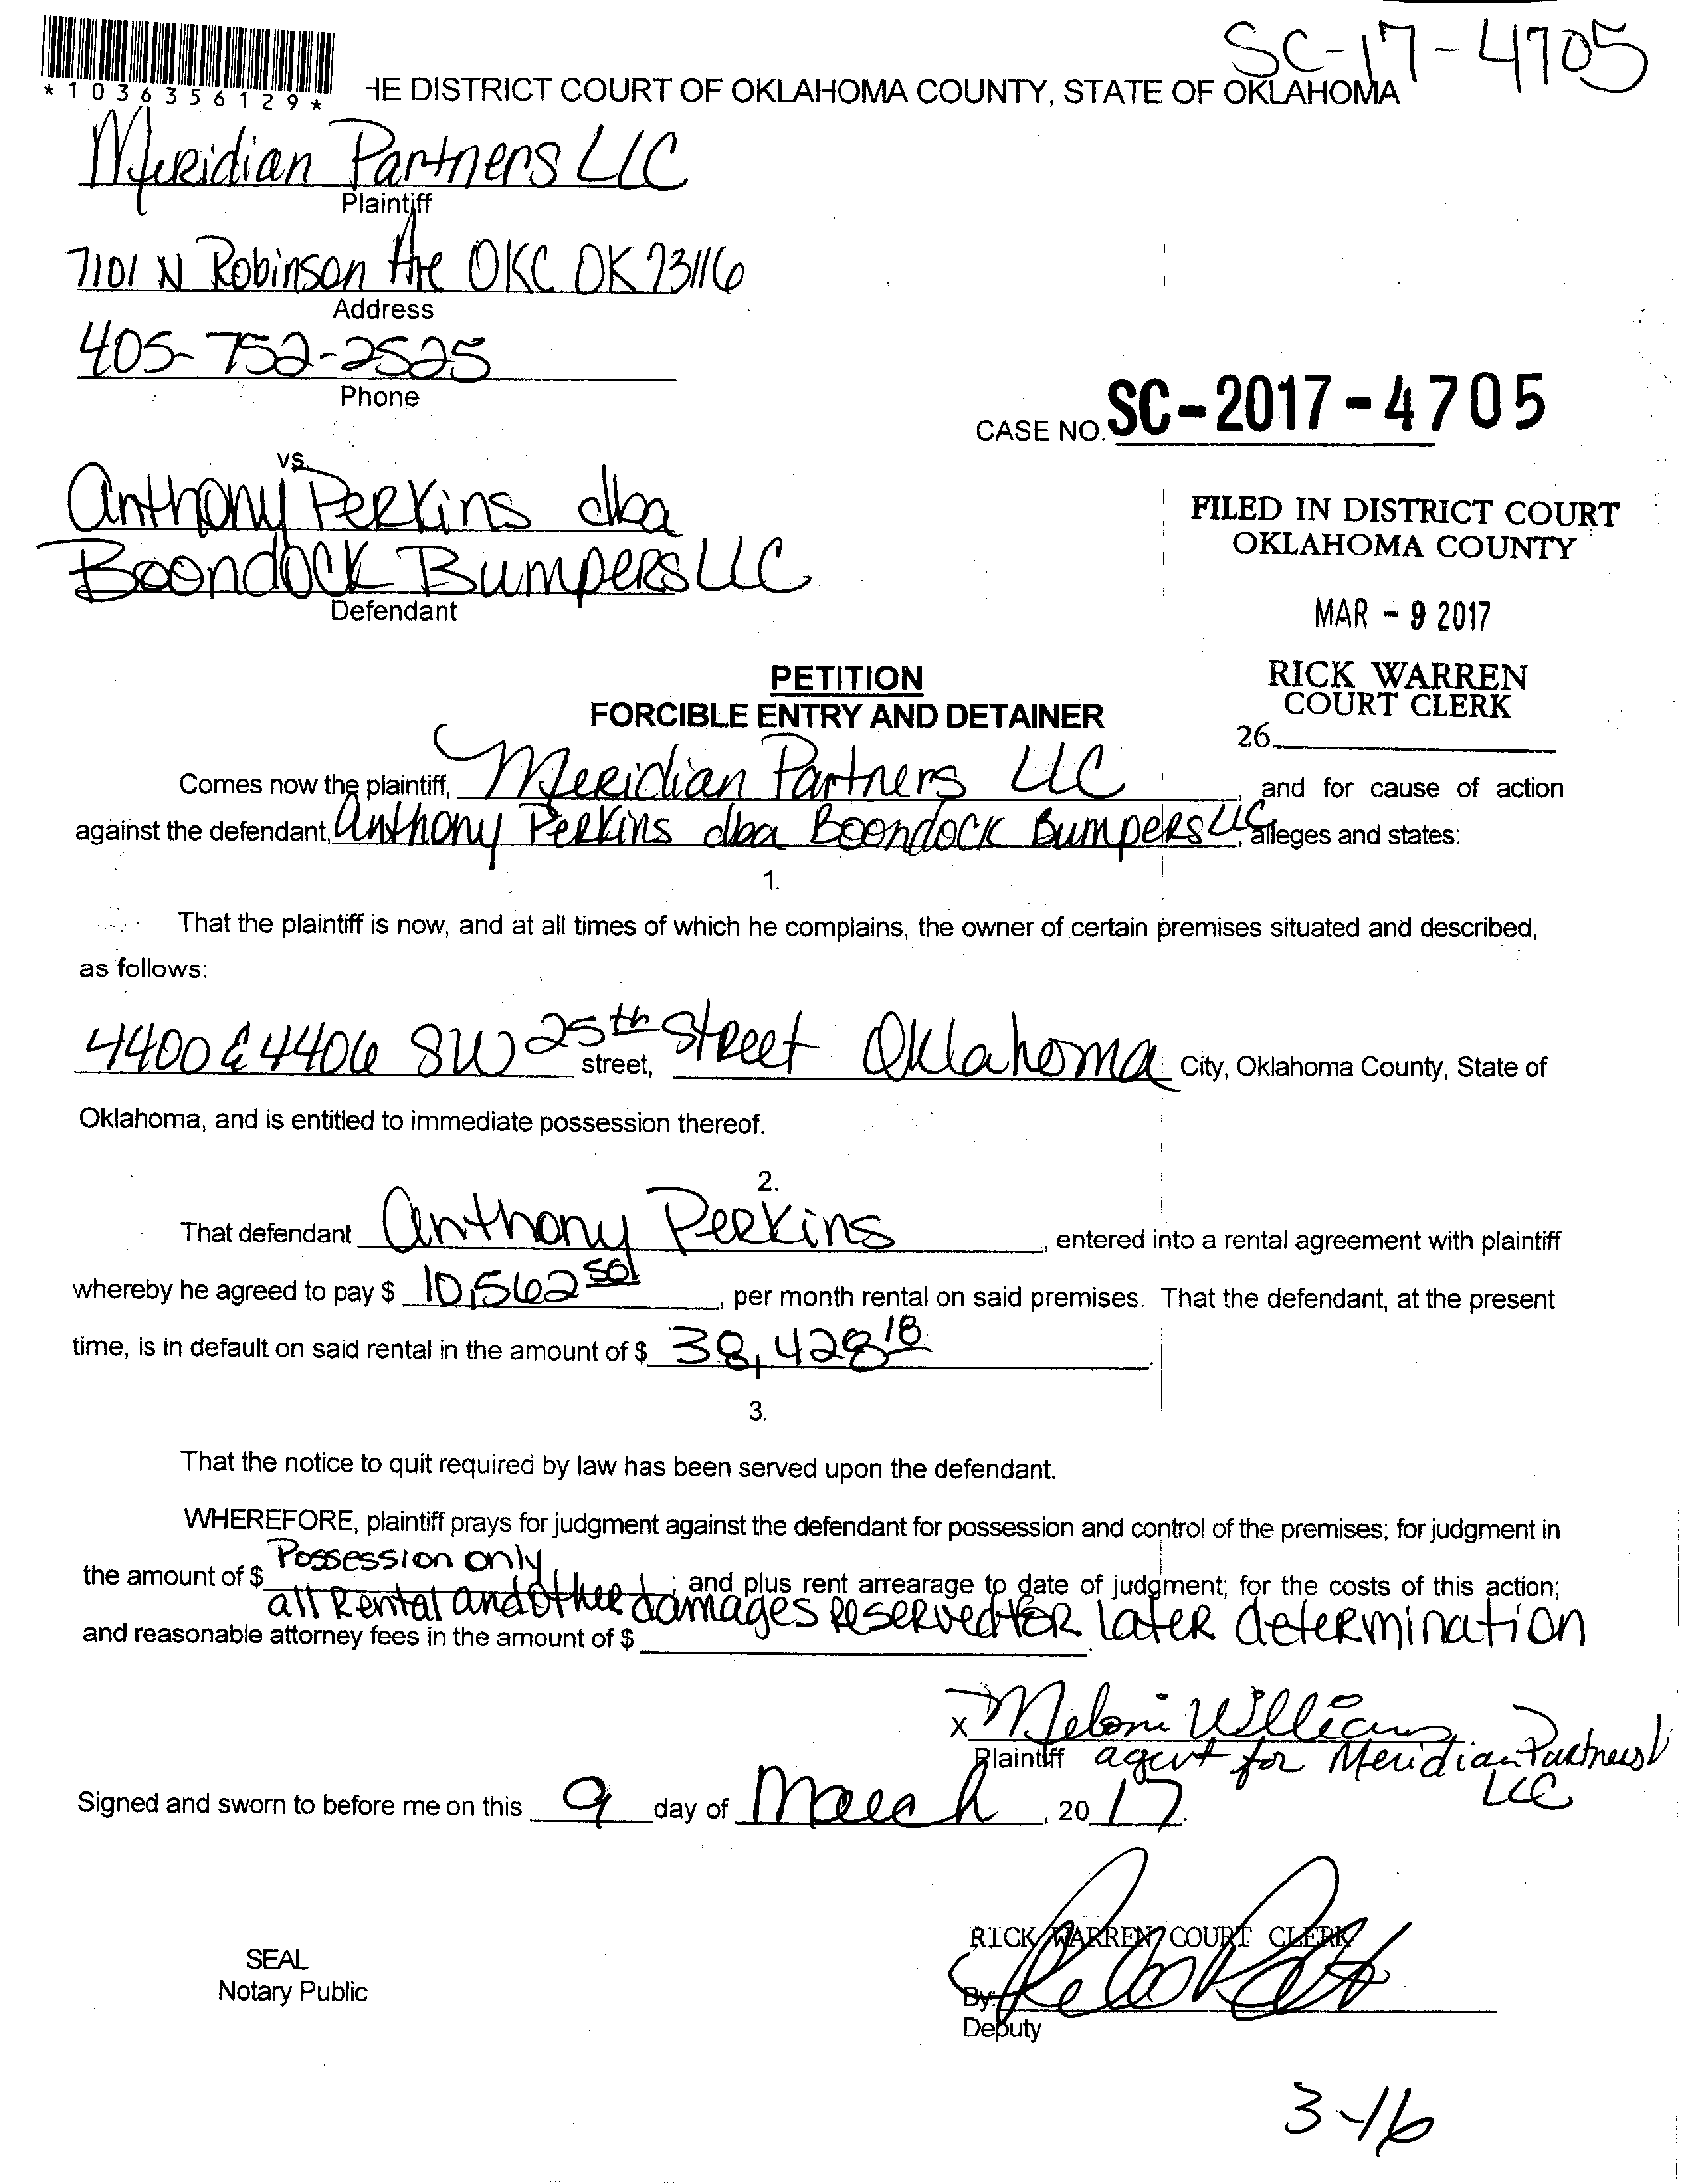 SC-17-4705
*1036356129*
HE DISTRICT COURT OF OKLAHOMA COUNTY, STATE OF OKLAHOMA
Meridian Partners LLC
Plaintiff
7101 N Robinson Ave OKC OK 73116
Address
405-752-2525
Phone
CASE NO. SC-2017-4705
vs.
Anthony Perkins dba
Boondock Bumpers LLC
Defendant
FILED IN DISTRICT COURT
OKLAHOMA COUNTY
MAR - 9 2017
RICK WARREN
COURT CLERK
26
PETITION
FORCIBLE ENTRY AND DETAINER
Comes now the plaintiff, Meridian Partners LLC, and for cause of action
against the defendant, Anthony Perkins dba Boondock Bumpers LLC, alleges and states:
1.
That the plaintiff is now, and at all times of which he complains, the owner of certain premises situated and described,
as follows:
4400 & 4406 SW 25th street, Street Oklahoma City, Oklahoma County, State of
Oklahoma, and is entitled to immediate possession thereof.
2.
That defendant Anthony Perkins, entered into a rental agreement with plaintiff
whereby he agreed to pay $ 10,562 50/, per month rental on said premises. That the defendant, at the present
time, is in default on said rental in the amount of $ 38,428 18.
3.
That the notice to quit required by law has been served upon the defendant.
WHEREFORE, plaintiff prays for judgment against the defendant for possession and control of the premises; for judgment in
the amount of $ Possession only; and plus rent arrearage to date of judgment; for the costs of this action;
all Rental and other damages reserved for later determination
and reasonable attorney fees in the amount of $
x Meloni Williams
Plaintiff agent for Meridian Partners
LLC
Signed and sworn to before me on this 9 day of March, 2017.
RICK WARREN COURT CLERK
SEAL
Notary Public
By:
Deputy
3-16